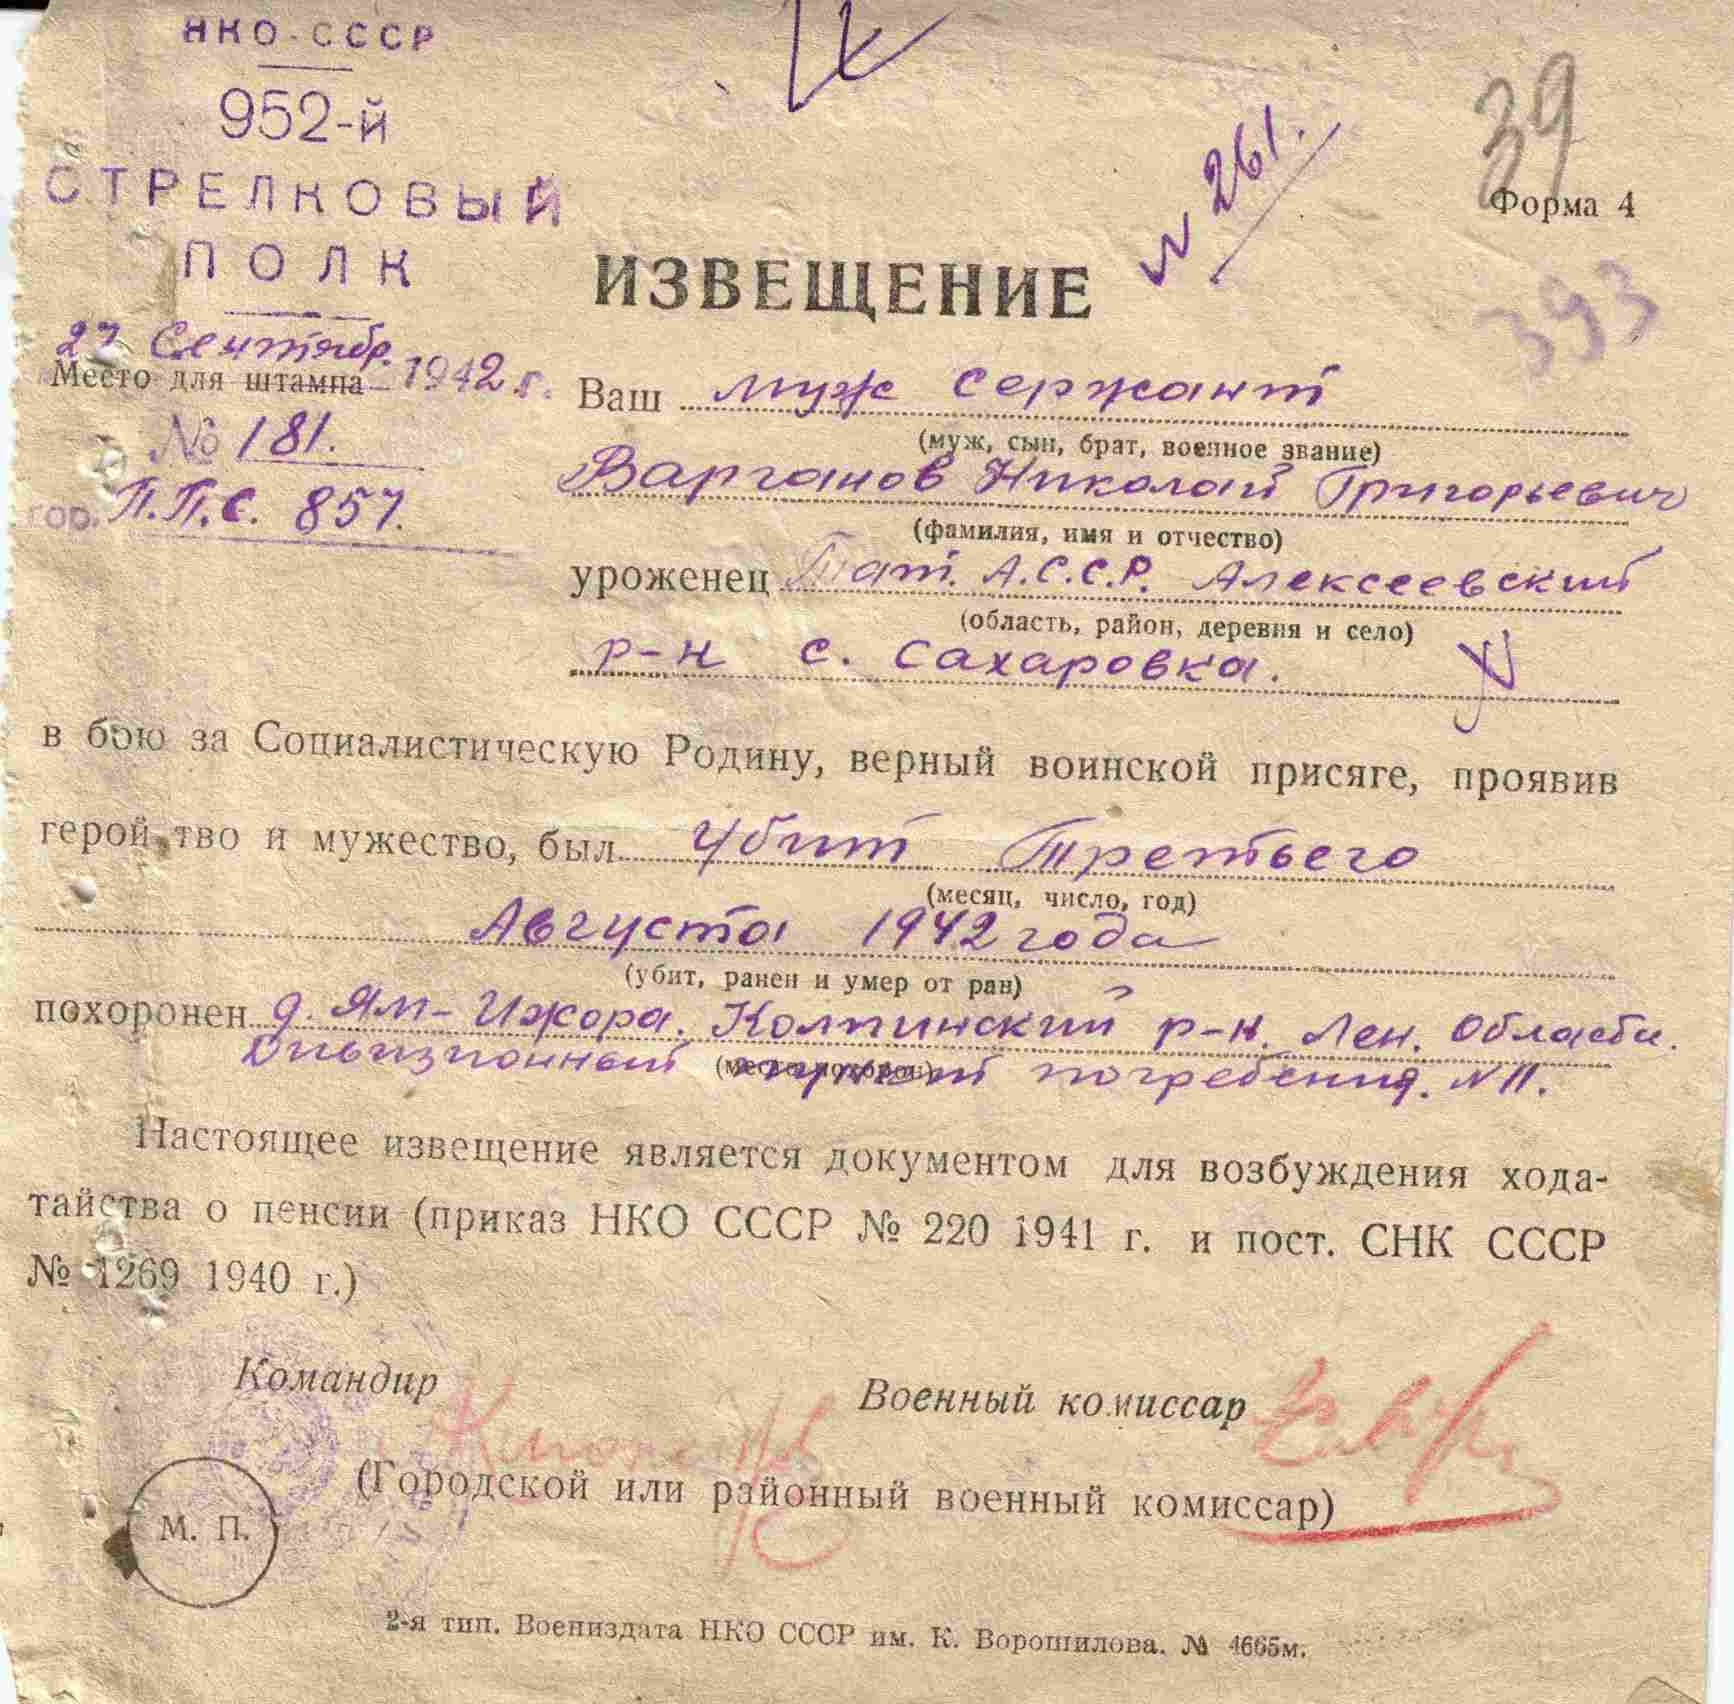 НКО-СССР
952-й
СТРЕЛКОВЫЙ
ПОЛК
39
№ 261.
Форма 4
ИЗВЕЩЕНИЕ
393
27 Сентябр. 1942 г.
Место для штампа
№ 181.
гор. П.П.С. 857.
Ваш муж сержант
(муж, сын, брат, военное звание)
Варганов Николай Григорьевич
(фамилия, имя и отчество)
уроженец Тат. А.С.С.Р. Алексеевский
(область, район, деревня и село)
р-н с. Сахаровка.
в бою за Социалистическую Родину, верный воинской присяге, проявив
герой тво и мужество, был убит Третьего
(месяц, число, год)
Августа 1942 года
(убит, ранен и умер от ран)
похоронен д. Ям-Ижора. Колпинский р-н. Лен. Области.
(место похорон)
Дивизионный пункт погребения. № 11.
Настоящее извещение является документом для возбуждения хода-
тайства о пенсии (приказ НКО СССР № 220 1941 г. и пост. СНК СССР
№ 1269 1940 г.)
Командир
Военный комиссар
(Городской или районный военный комиссар)
М. П.
2-я тип. Воениздата НКО СССР им. К. Ворошилова. № 4665м.